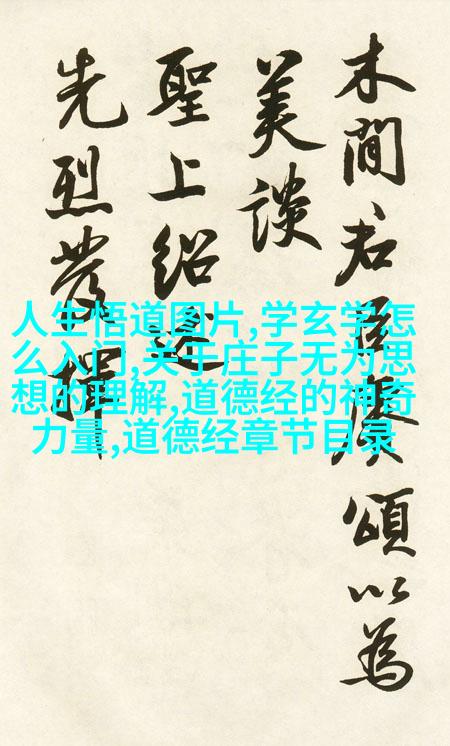 木間君臣頌以為
美談
聖上紹述
先烈發揮
人生悟道图片,学玄学怎
么入门,关于庄子无为思
想的理解,道德经的神奇
力量,道德经章节目录